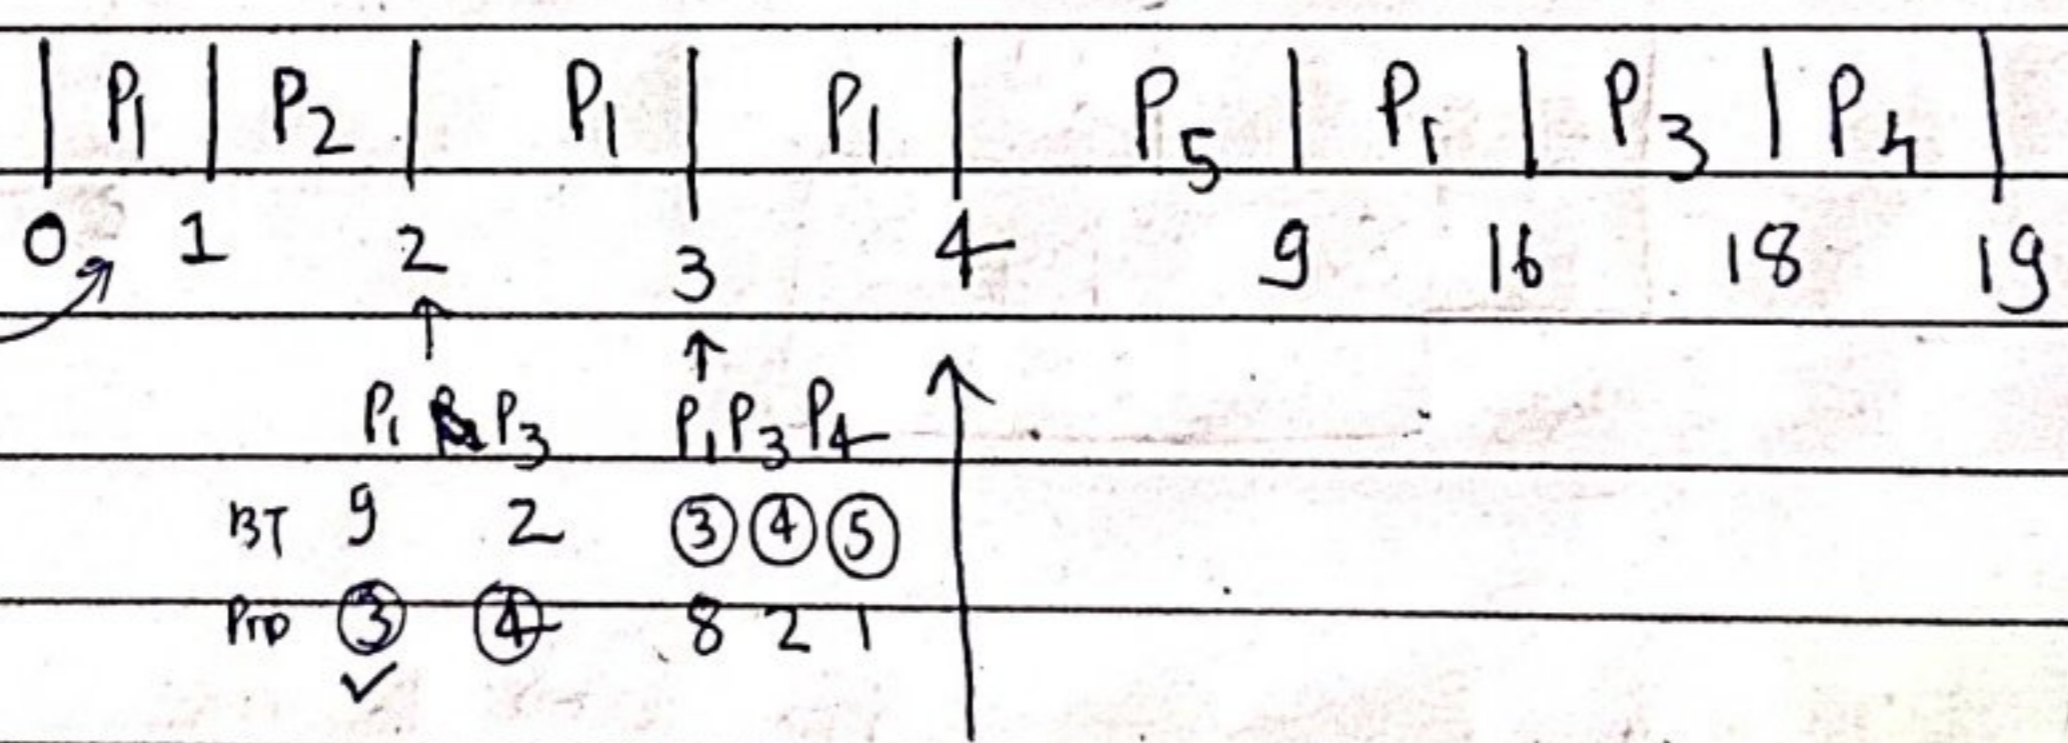 P1 P2 P1 P1 P5 P1 P3 P4
0 1 2 3 4 9 16 18 19
P1 P3 P1 P3 P4
BT 9 2 3 4 5
Prio 3 4 8 2 1